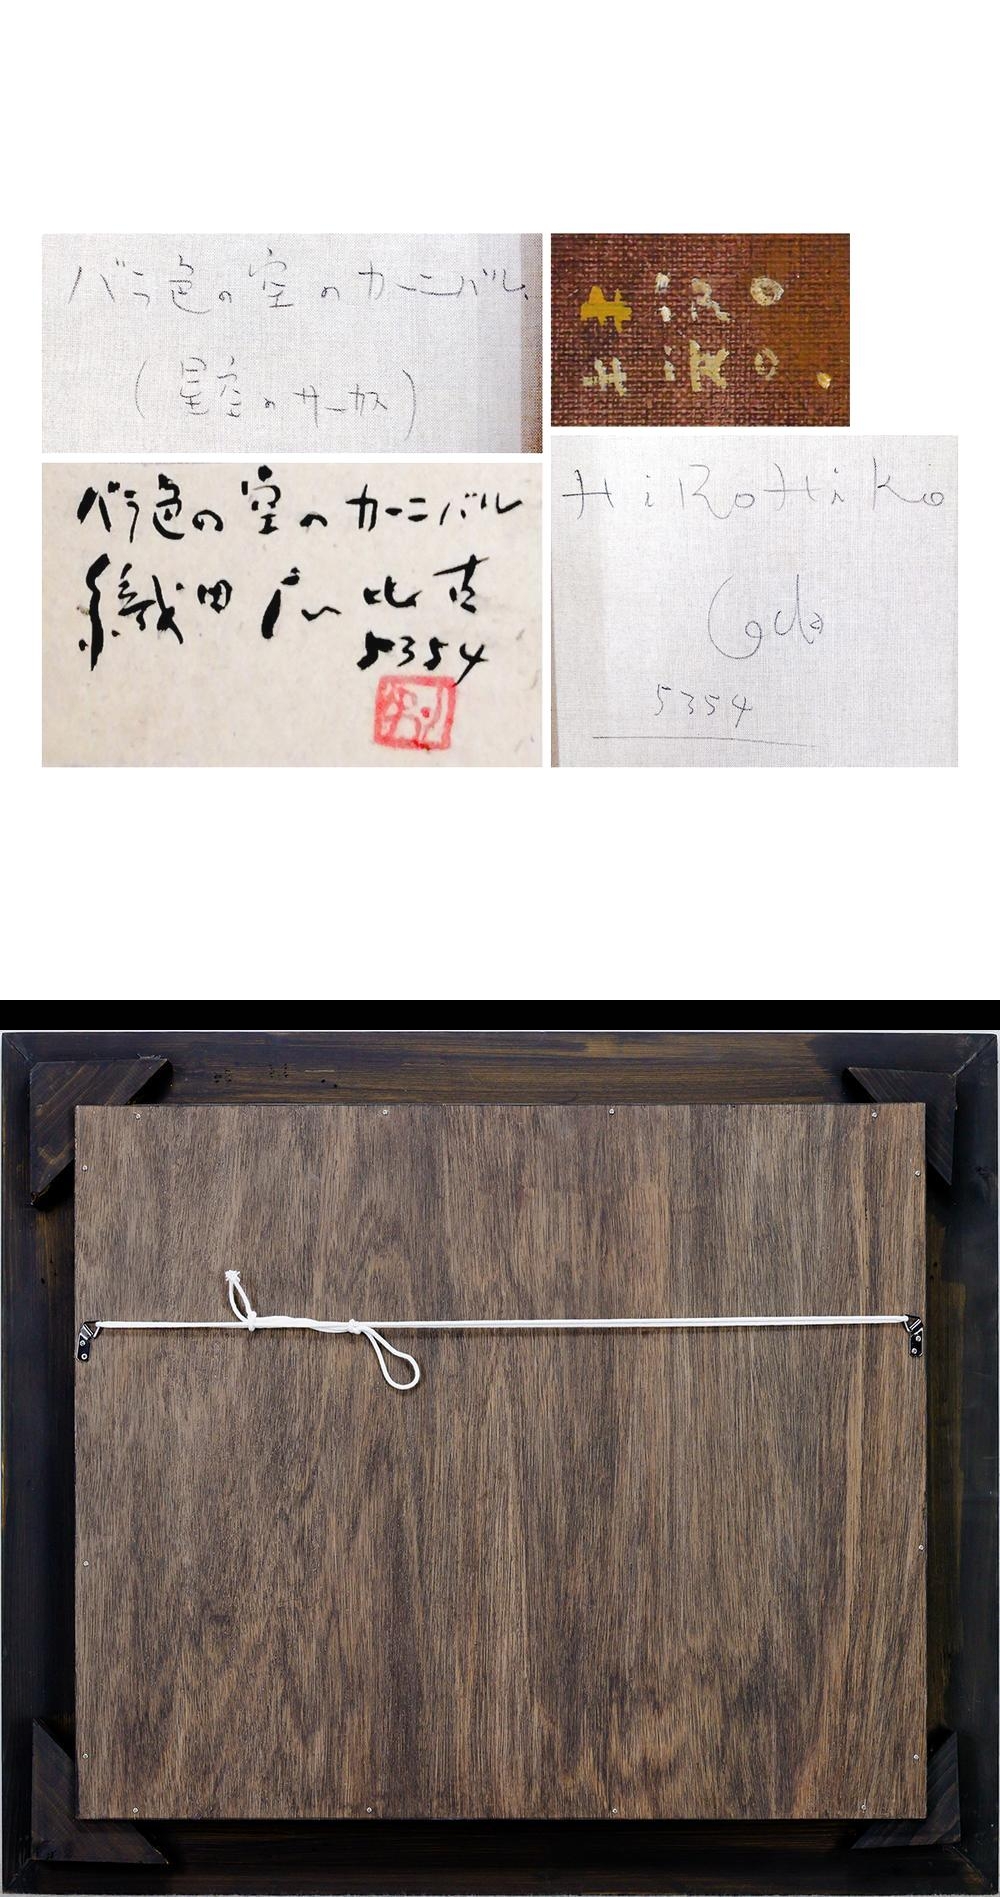 バラ色の空のカーニバル
(星空のサーカス)
HiRo
HiKo.
バラ色の空のカーニバル
織田広比古
5354
HiRoHiKo
Oda
5354